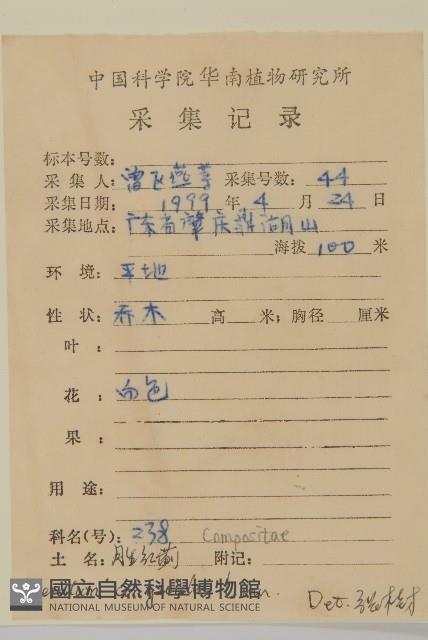 中国科学院华南植物研究所
采集记录
标本号数:
采集人: 曾飞燕等 采集号数: 44
采集日期: 1999 年 4 月 24 日
采集地点: 广东省肇庆鼎湖山
海拨 100 米
环境: 平地
性状: 乔木 高 米; 胸径 厘米
叶:
花: 白色
果:
用途:
科名(号): 238 Compositae
土名: 附记:
國立自然科學博物館
NATIONAL MUSEUM OF NATURAL SCIENCE
Det.